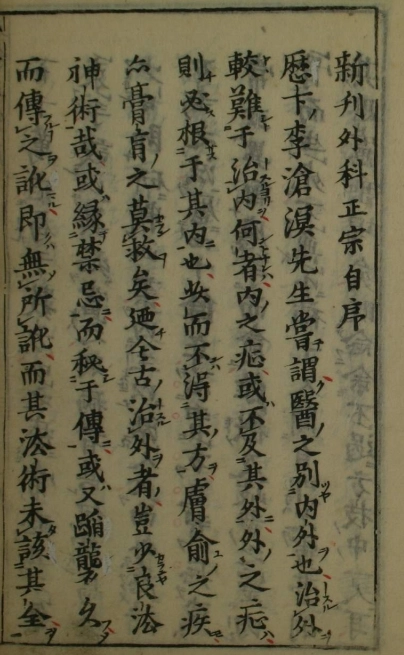 新刊外科正宗自序
歴下李滄溟先生嘗謂醫之別内外也治外
較難于治内何者内之症或不及其外外之症
則必根于其内也此而不得其方膚俞之疾
亦膏肓之莫救矣廼今古治外者豈少良法
神術哉或縁禁忌而秘于傳或又蹈襲久
而傳之訛即無所訛而其法術未該其全